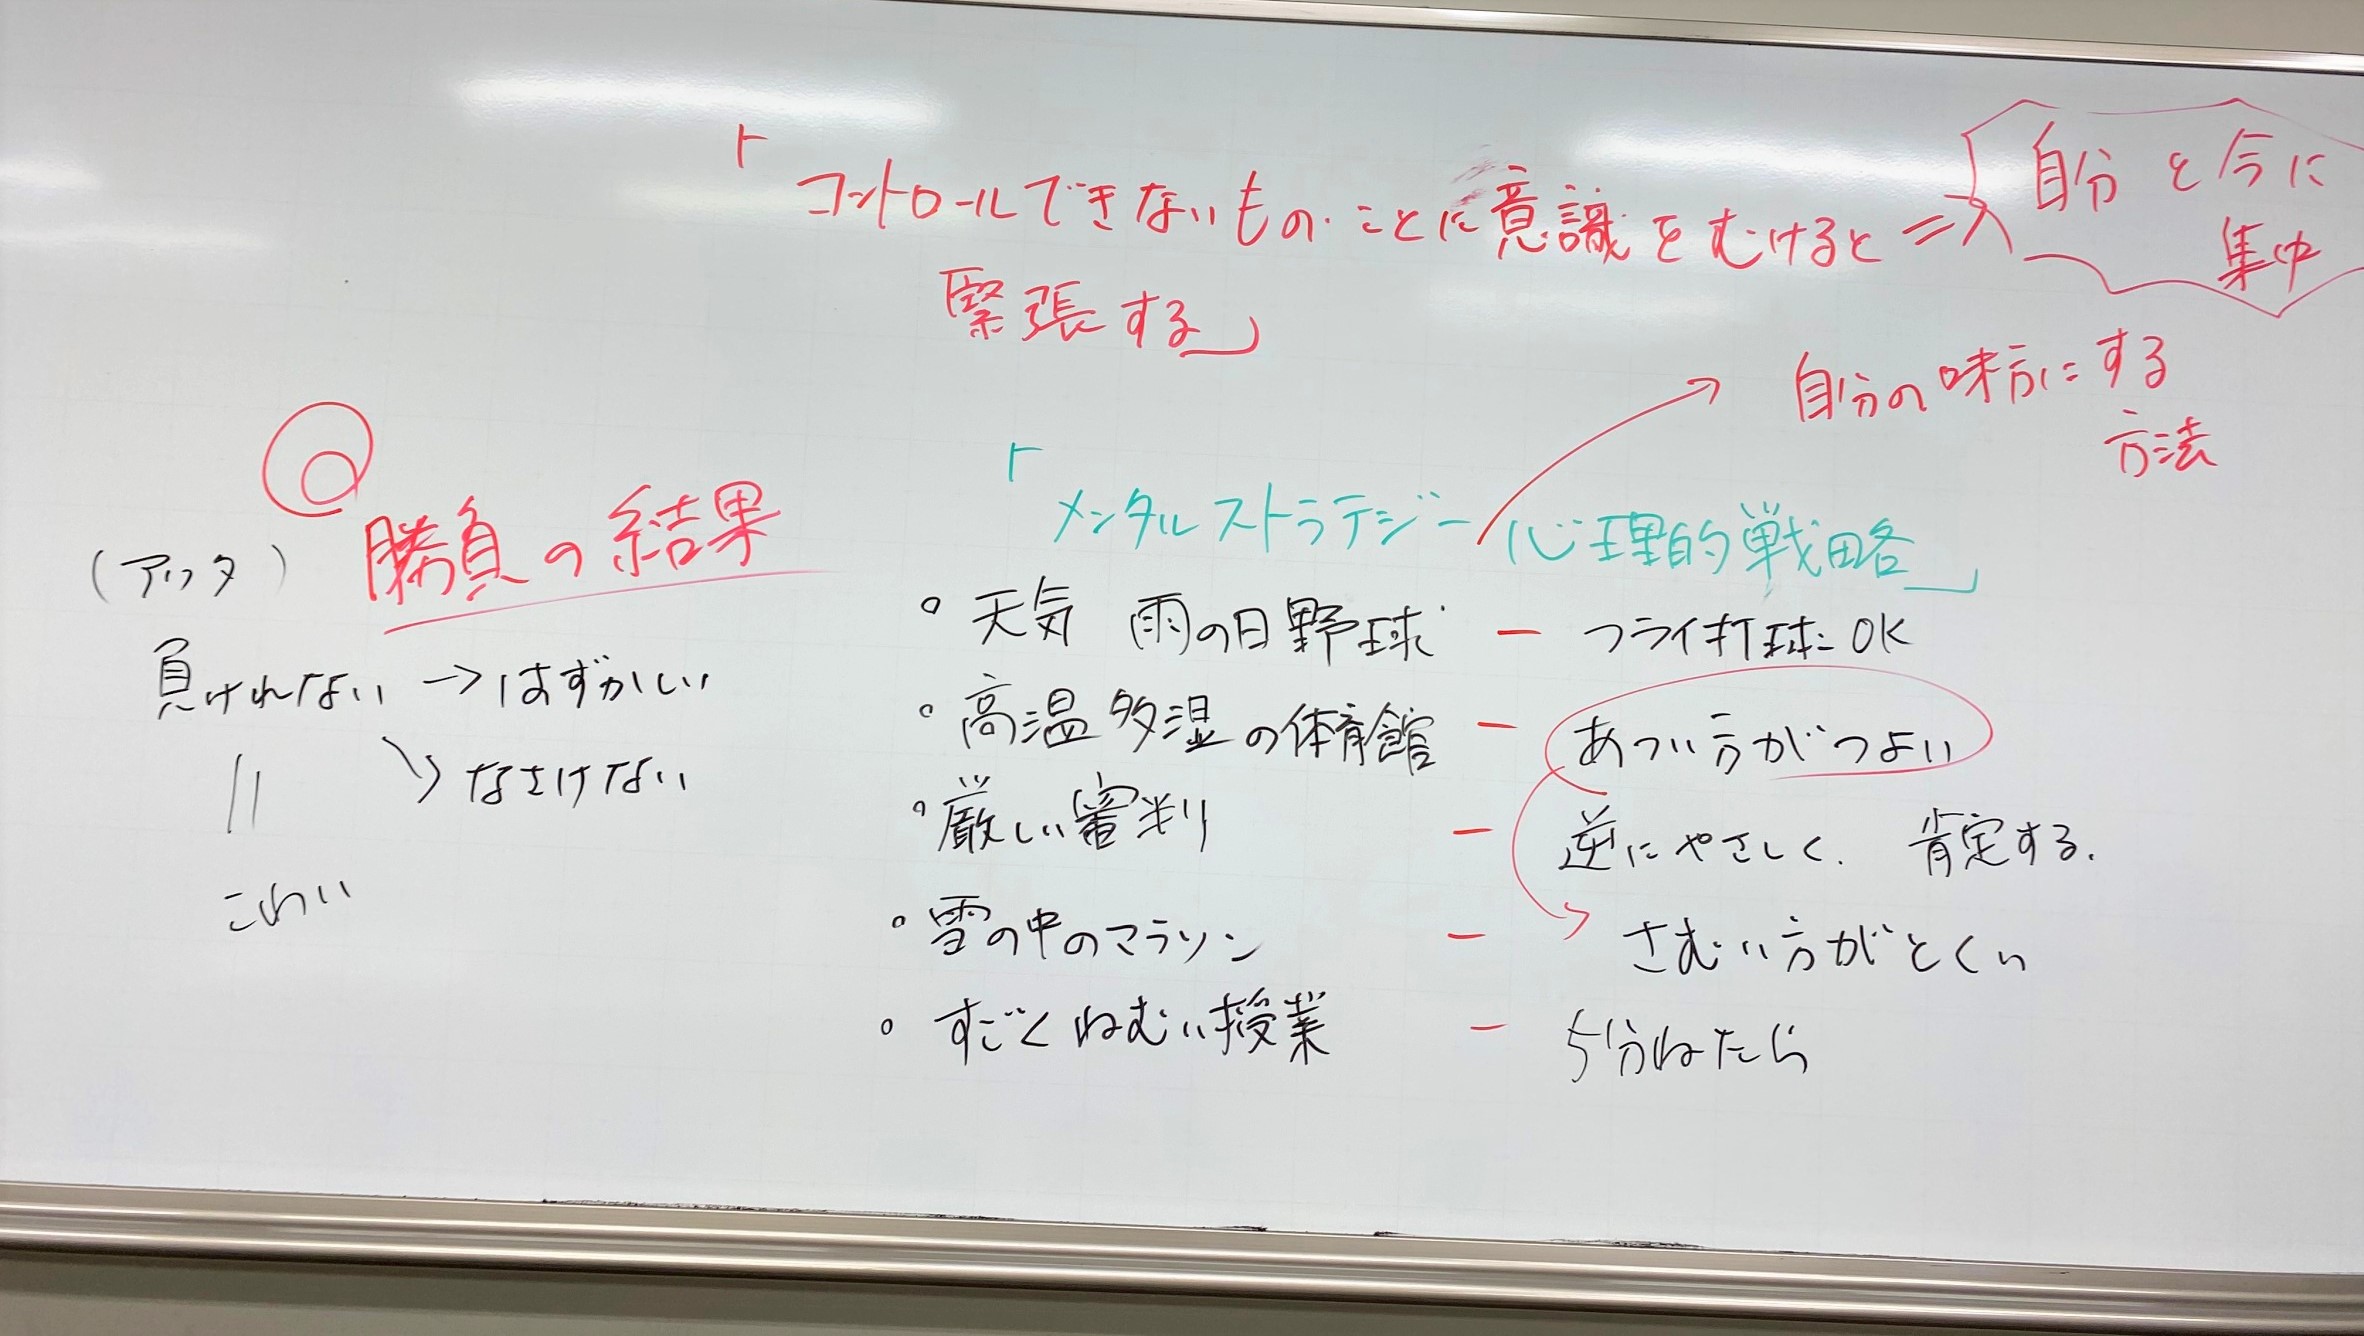 「コントロールできないもの・ことに意識をむけると ⇒ 自分と今に
集中
緊張する」
自分の味方にする
方法
勝負の結果
「メンタルストラテジー 心理的戦略」
(アウタ)
負けれない → はずかしい
→ なさけない
||
こわい
。天気 雨の日野球 ー フライ打球OK
。高温多湿の体育館 ー あつい方がつよい
。厳しい審判 ー 逆にやさしく. 肯定する.
。雪の中のマラソン ー さむい方がとくい
。すごくねむい授業 ー 5分ねたら